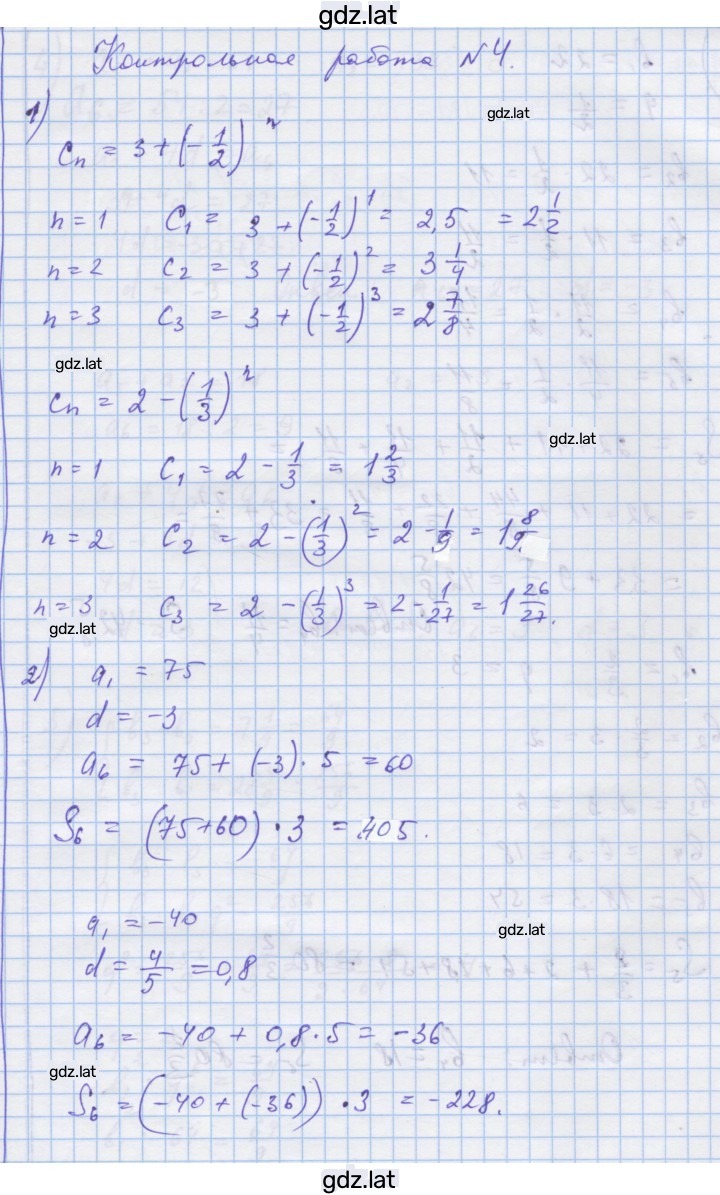 gdz.lat
Контрольная работа №4.
gdz.lat
1)
Cn = 3 + (-1/2)^n
n = 1 C1 = 3 + (-1/2)^1 = 2,5 = 2 1/2
n = 2 C2 = 3 + (-1/2)^2 = 3 1/4
n = 3 C3 = 3 + (-1/2)^3 = 2 7/8.
gdz.lat
Cn = 2 - (1/3)^n
gdz.lat
n = 1 C1 = 2 - 1/3 = 1 2/3
n = 2 C2 = 2 - (1/3)^2 = 2 - 1/9 = 1 8/9.
n = 3 C3 = 2 - (1/3)^3 = 2 - 1/27 = 1 26/27.
gdz.lat
2) a1 = 75
d = -3
a6 = 75 + (-3) · 5 = 60
S6 = (75+60) · 3 = 405.
a1 = -40
gdz.lat
d = 4/5 = 0,8
a6 = -40 + 0,8 · 5 = -36
gdz.lat
S6 = (-40 + (-36)) · 3 = -228.
gdz.lat